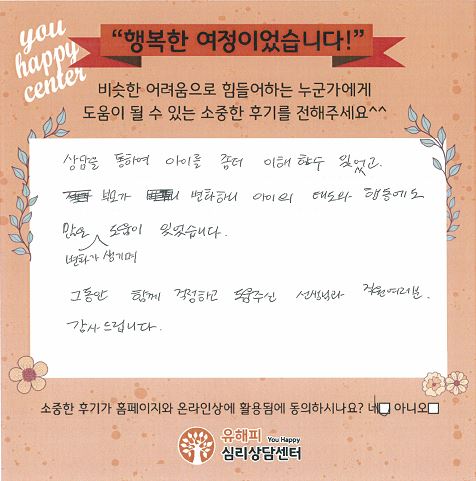 you
happy
center
“행복한 여정이었습니다!”
비슷한 어려움으로 힘들어하는 누군가에게
도움이 될 수 있는 소중한 후기를 전해주세요^^
상담을 통하여 아이를 좀더 이해 할수 있었고.
부모가 변화하니 아이의 태도와 행동에도
많은 도움이 있었습니다.
변화가 생기며
그동안 함께 걱정하고 도움주신 선생님과 직원여러분.
감사드립니다.
소중한 후기가 홈페이지와 온라인상에 활용됨에 동의하시나요? 네 아니오
유해피 You Happy
심리상담센터